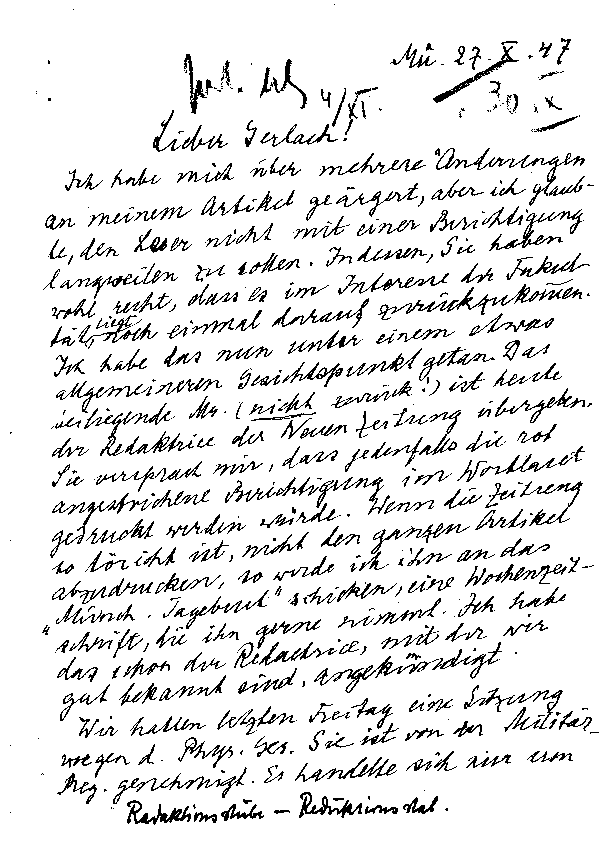 Mü. 27. X. 47
4/XI.
30. X
Lieber Gerlach!
Ich habe mich über mehrere Änderungen
an meinem Artikel geärgert, aber ich glaub-
te, den Leser nicht mit einer Berichtigung
langweilen zu sollen. Indessen, Sie haben
wohl recht, dass es im Interesse der Fakul-
tät liegt, noch einmal darauf zurückzukommen.
Ich habe das nun unter einem etwas
allgemeineren Gesichtspunkt getan. Das
beiliegende Ms. (nicht zurück!) ist heute
der Redaktrice der Neuen Zeitung übergeben.
Sie versprach mir, dass jedenfalls die rot
angestrichene Berichtigung im Wortlaut
gedruckt werden würde. Wenn die Zeitung
so töricht ist, nicht den ganzen Artikel
abzudrucken, so werde ich ihn an das
"Münch. Tagebuch" schicken, eine Wochenzeit-
schrift, die ihn gerne nimmt. Ich habe
das schon der Redactrice, mit der wir
gut bekannt sind, angekündigt.
Wir hatten letzten Freitag eine Sitzung
wegen d. Phys. Ges. Sie ist von der Militär-
Reg. genehmigt. Es handelte sich nur um
Redaktionsstube — Reduktionsstab.